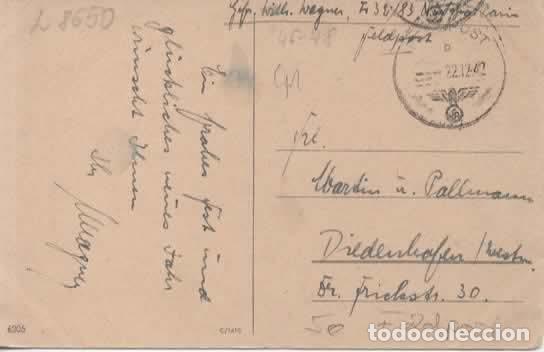 L 8650
Gefr. Wilh. Wagner,
Feldpost
46-48
22.12.42
Ein frohes Fest und
glückliches neues Jahr
wünscht Ihnen
Ihr
Wagner
Frl.
Martin u. Pallmann
Diedenhofen / Westm.
Dr. Frickstr. 30.
50
6305
C/1410
todocoleccion